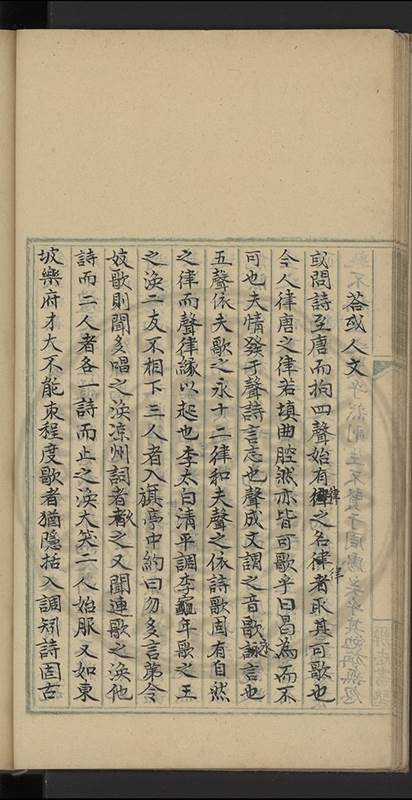 荅或人文
或問詩至唐而拘四聲始有律之名律者取其可歌也
今人律唐之律若填曲腔然亦皆可歌乎曰曷為而不
可也夫情發于聲詩言志也聲成文謂之音歌詠言也
五聲依夫歌之永十二律和夫聲之依詩歌固有自然
之律而聲律緣以起也李太白清平調李龜年歌之王
之渙二友不相下三人者入旗亭中約曰勿多言第令
妓歌則聞多唱之渙凉州詞者又聞連歌之渙他
詩而二人者各一詩而止之渙大笑二人始服又如東
坡樂府才大不能束程度歌者猶隱括入調矧詩固古